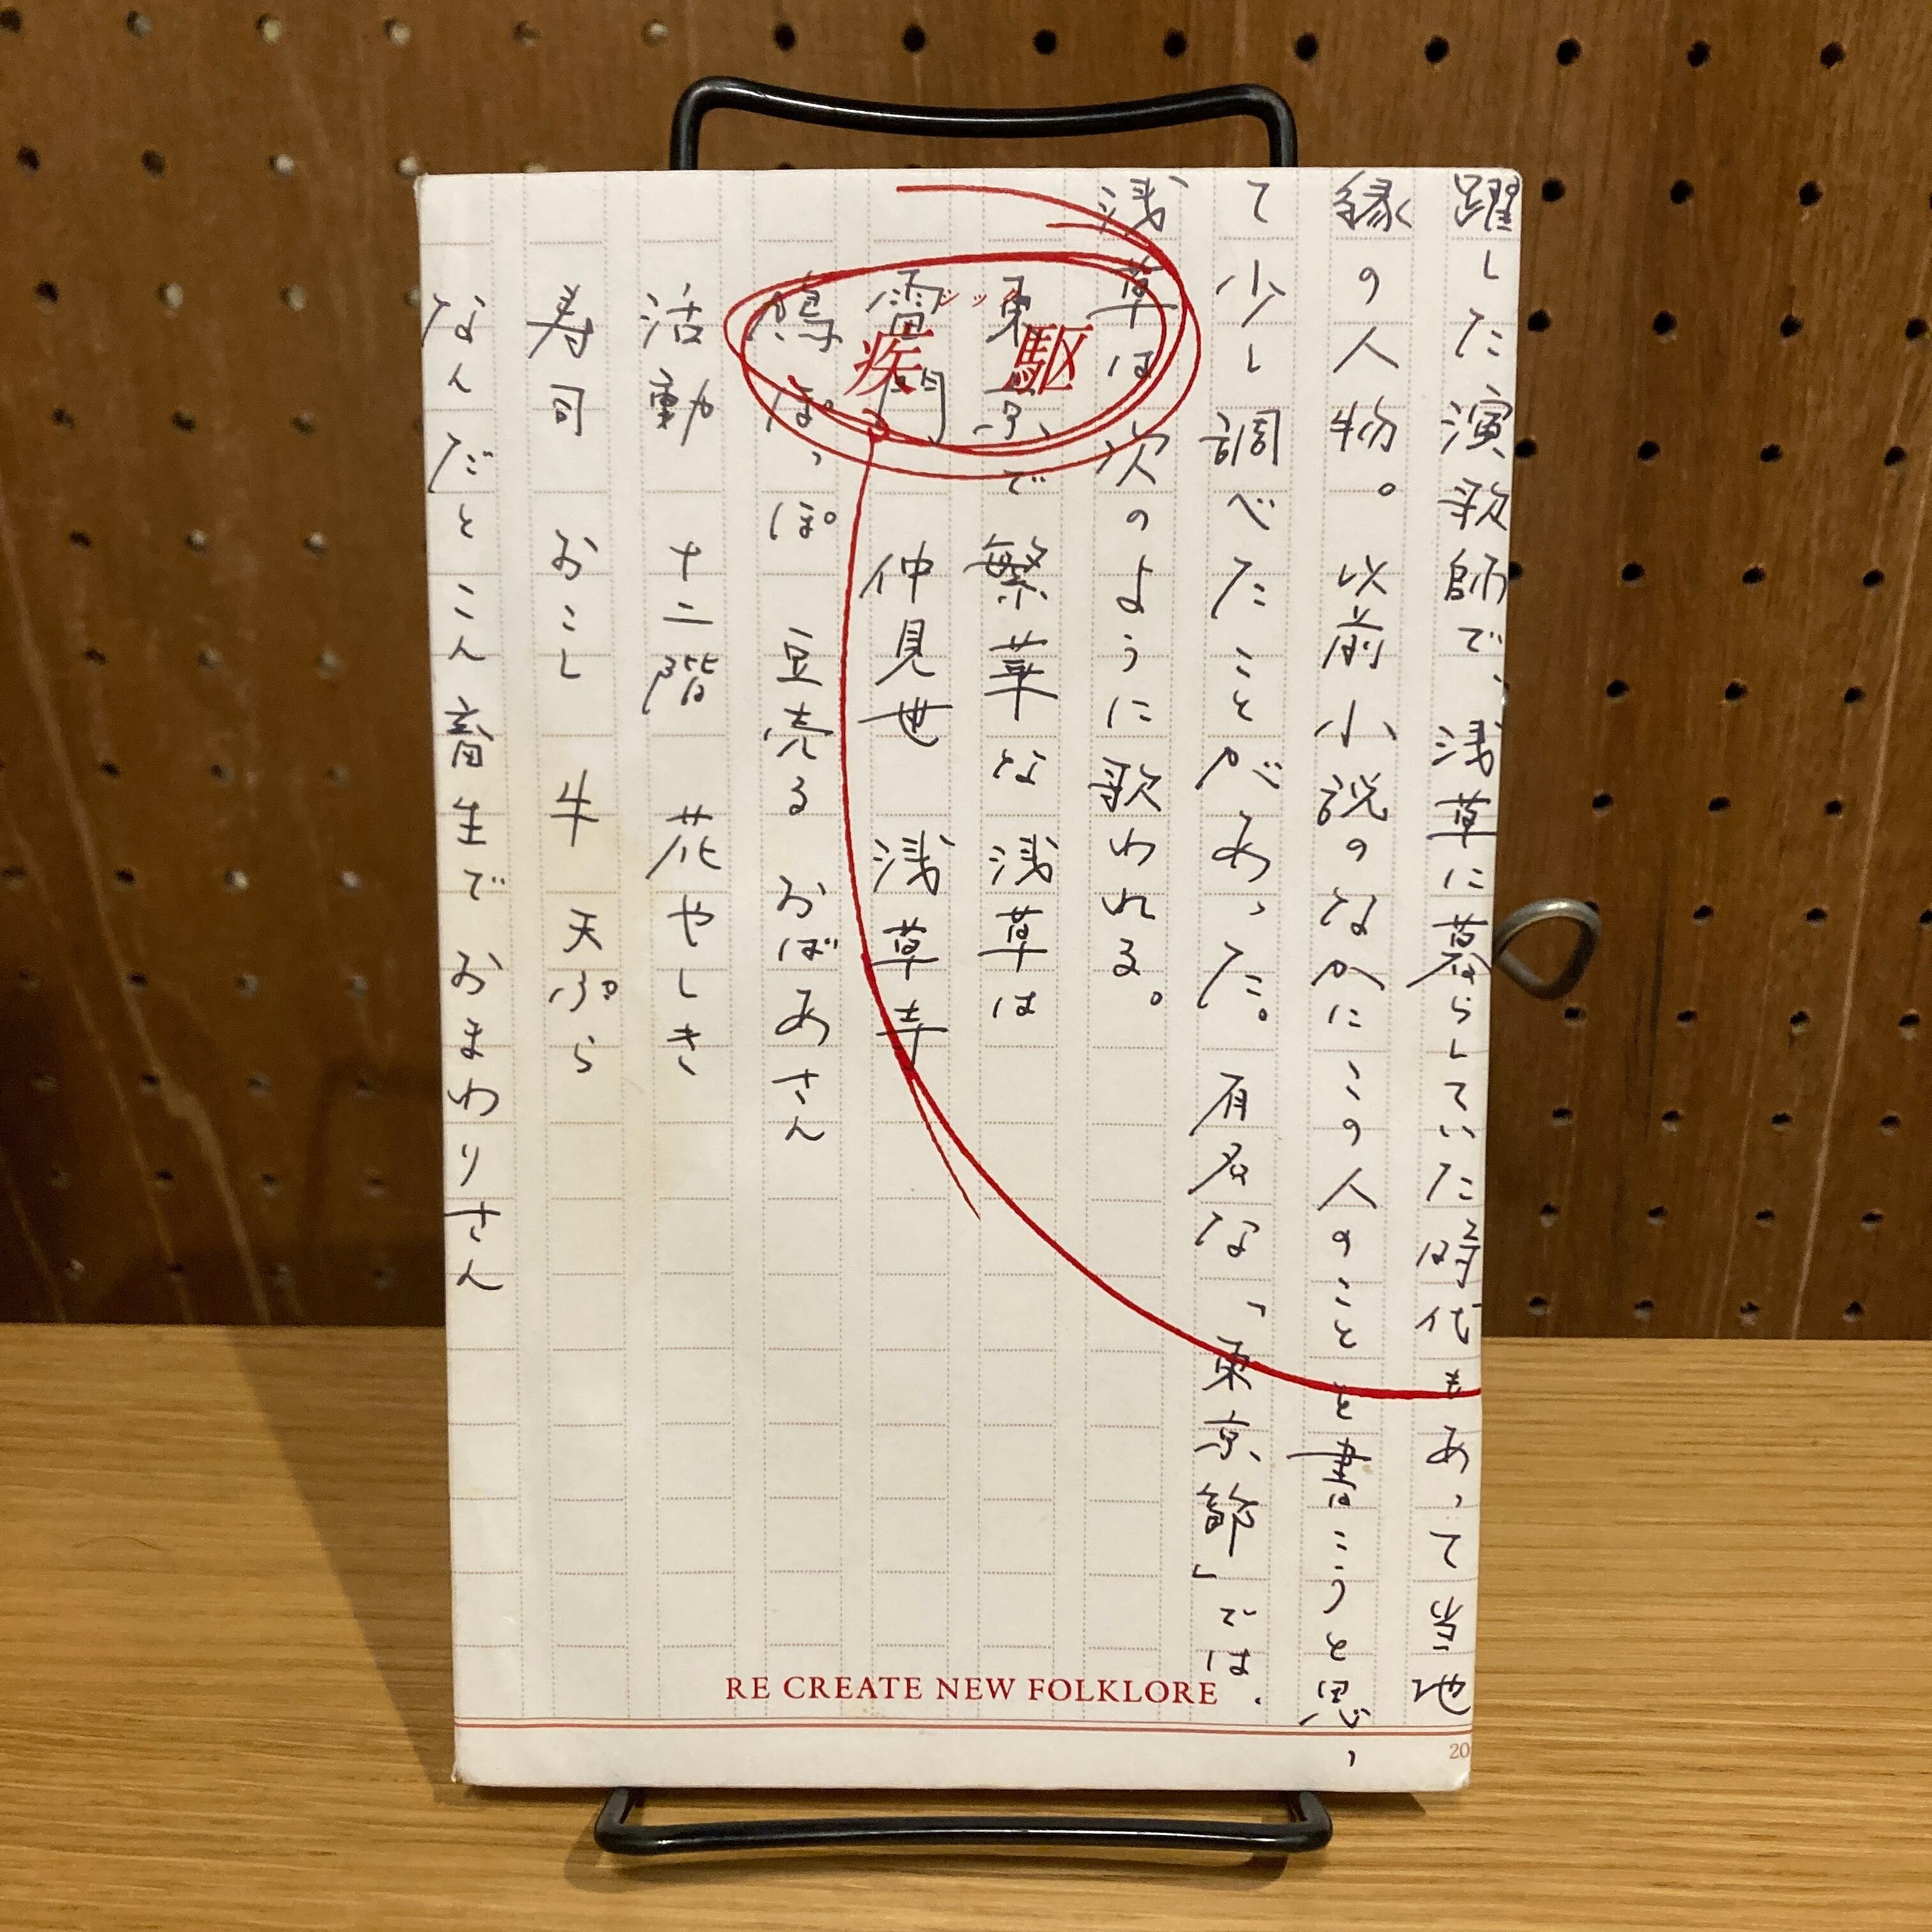 躍した演歌師で、浅草に暮らしていた時代もあって当地
縁の人物。以前小説のなかにこの人のことを書こうと思っ
て少し調べたことがあった。有名な「東京節」では、
浅草は次のように歌われる。
東京で繁華な浅草は
雷門 仲見世 浅草寺
鳩ぽっぽ 豆売るおばあさん
活動 十二階 花やしき
寿司 おこし 牛 天ぷら
なんだとこん畜生でおまわりさん
疾駆
シック
RE CREATE NEW FOLKLORE
20